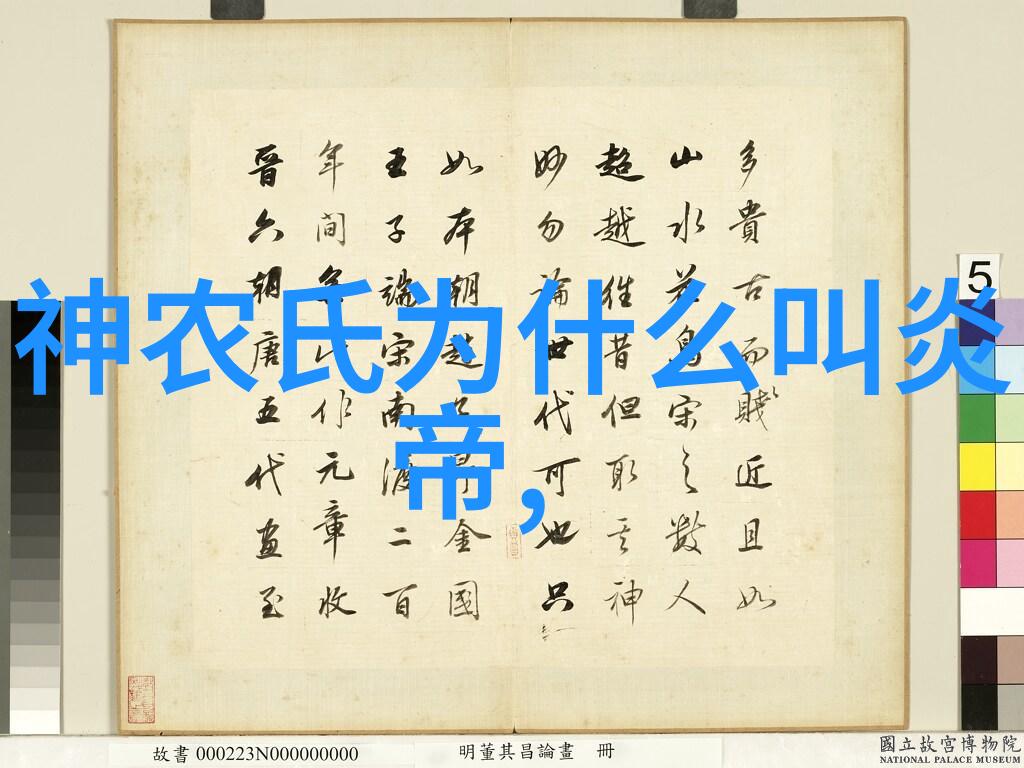 神农氏为什么叫炎
帝,
多貴古而賤近且如
山水花鳥宋之數人
超越往昔但取其神
妙勿論世代可也只
如本朝趙子昂金國
王子端宋南渡二百
年間無此作元章收
晉六朝唐五代畫至
5
故書 000223N000000000
明董其昌論畫 冊
國立故宮博物院
NATIONAL PALACE MUSEUM